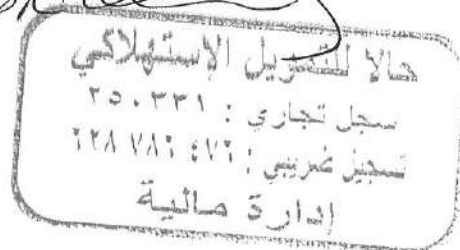 حالا للتمويل الإستهلاكي
سجل تجاري : ٢٥٠٣٣١
تسجيل ضريبي :
إدارة مالية